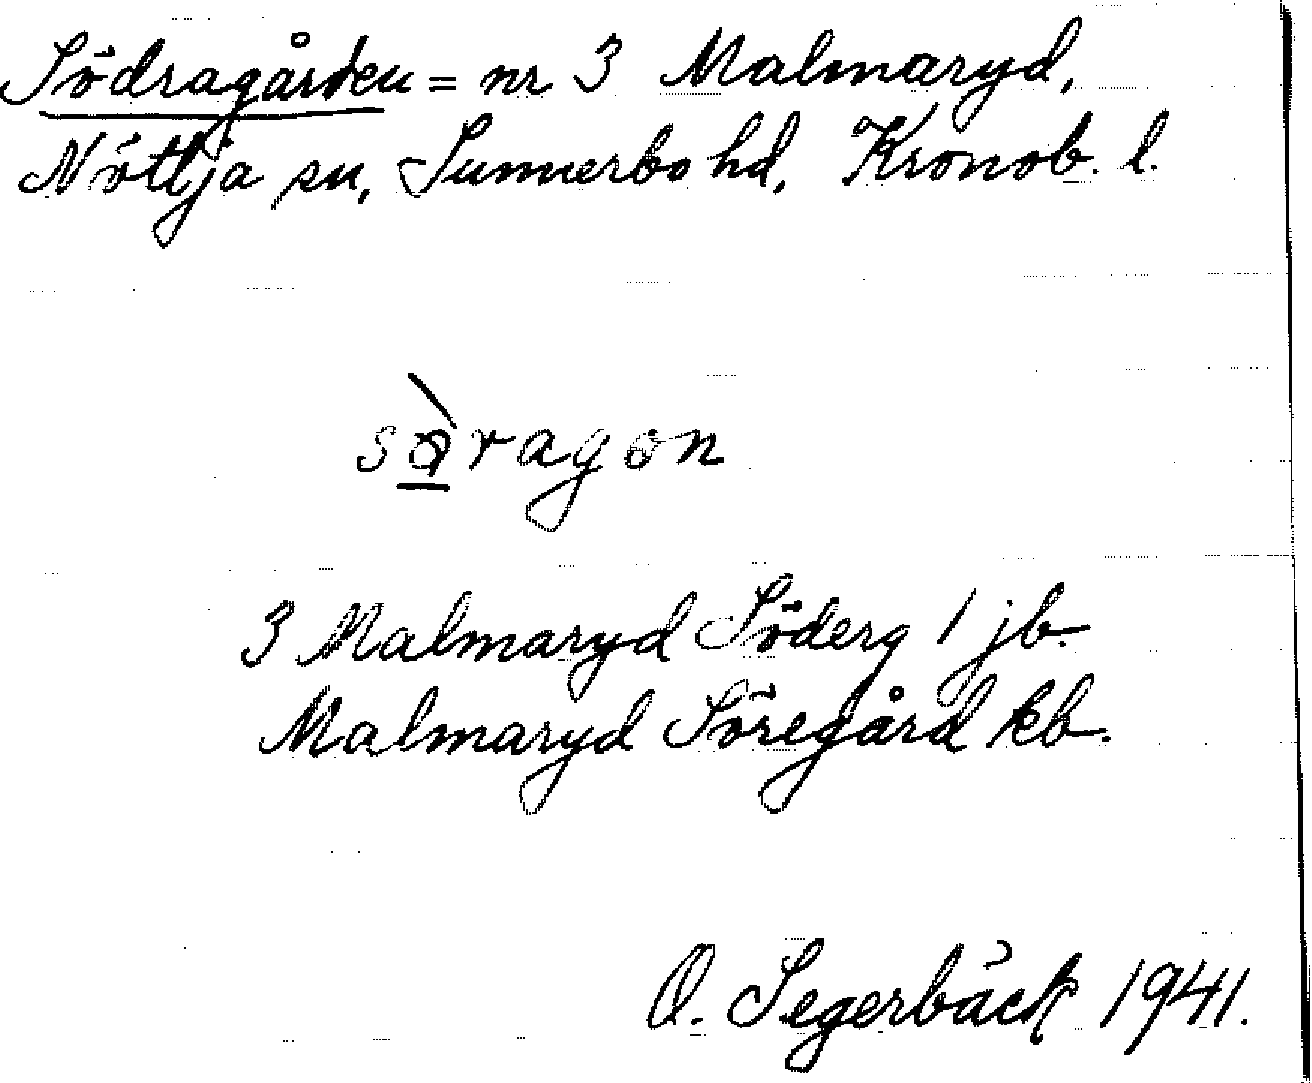 Södragården = nr 3 Malmaryd,
Nöttja sn, Sunnerbo hd, Kronob. l.
sòragon
3 Malmaryd Söderg 1 jb.
Malmaryd Söregård kb.
O. Segerbäck 1941.